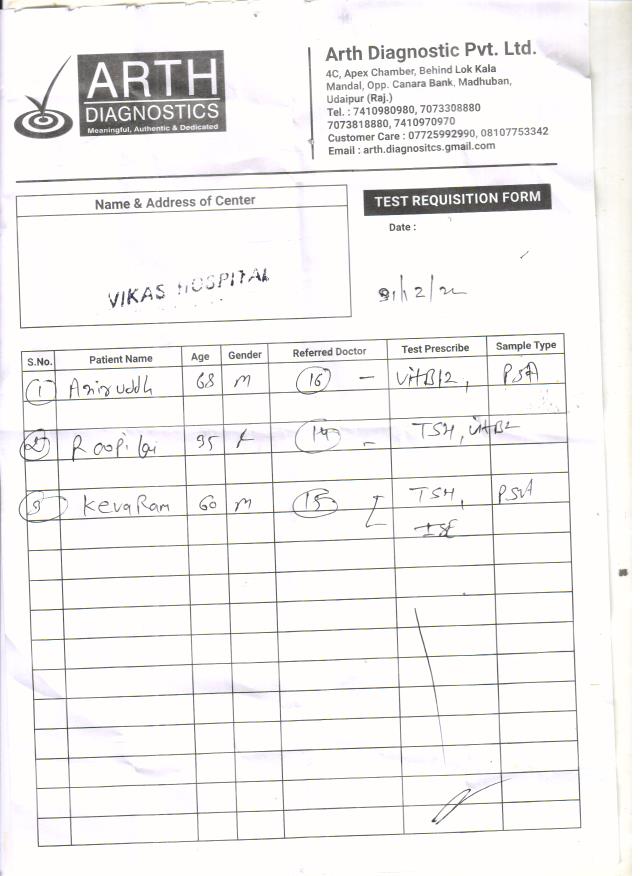 ARTH
DIAGNOSTICS
Meaningful, Authentic & Dedicated
Arth Diagnostic Pvt. Ltd.
4C, Apex Chamber, Behind Lok Kala
Mandal, Opp. Canara Bank, Madhuban,
Udaipur (Raj.)
Tel. : 7410980980, 7073308880
7073818880, 7410970970
Customer Care : 07725992990, 08107753342
Email : arth.diagnositcs.gmail.com
Name & Address of Center
VIKAS HOSPITAL
TEST REQUISITION FORM
Date :
S.No. Patient Name Age Gender Referred Doctor Test Prescribe Sample Type
1 Aniruddh 68 M 16 - VitB12, PSA
2 Roopi 95 F 14 - TSH, VitB12
3 KevaRam 60 M 15 TSH, PSA